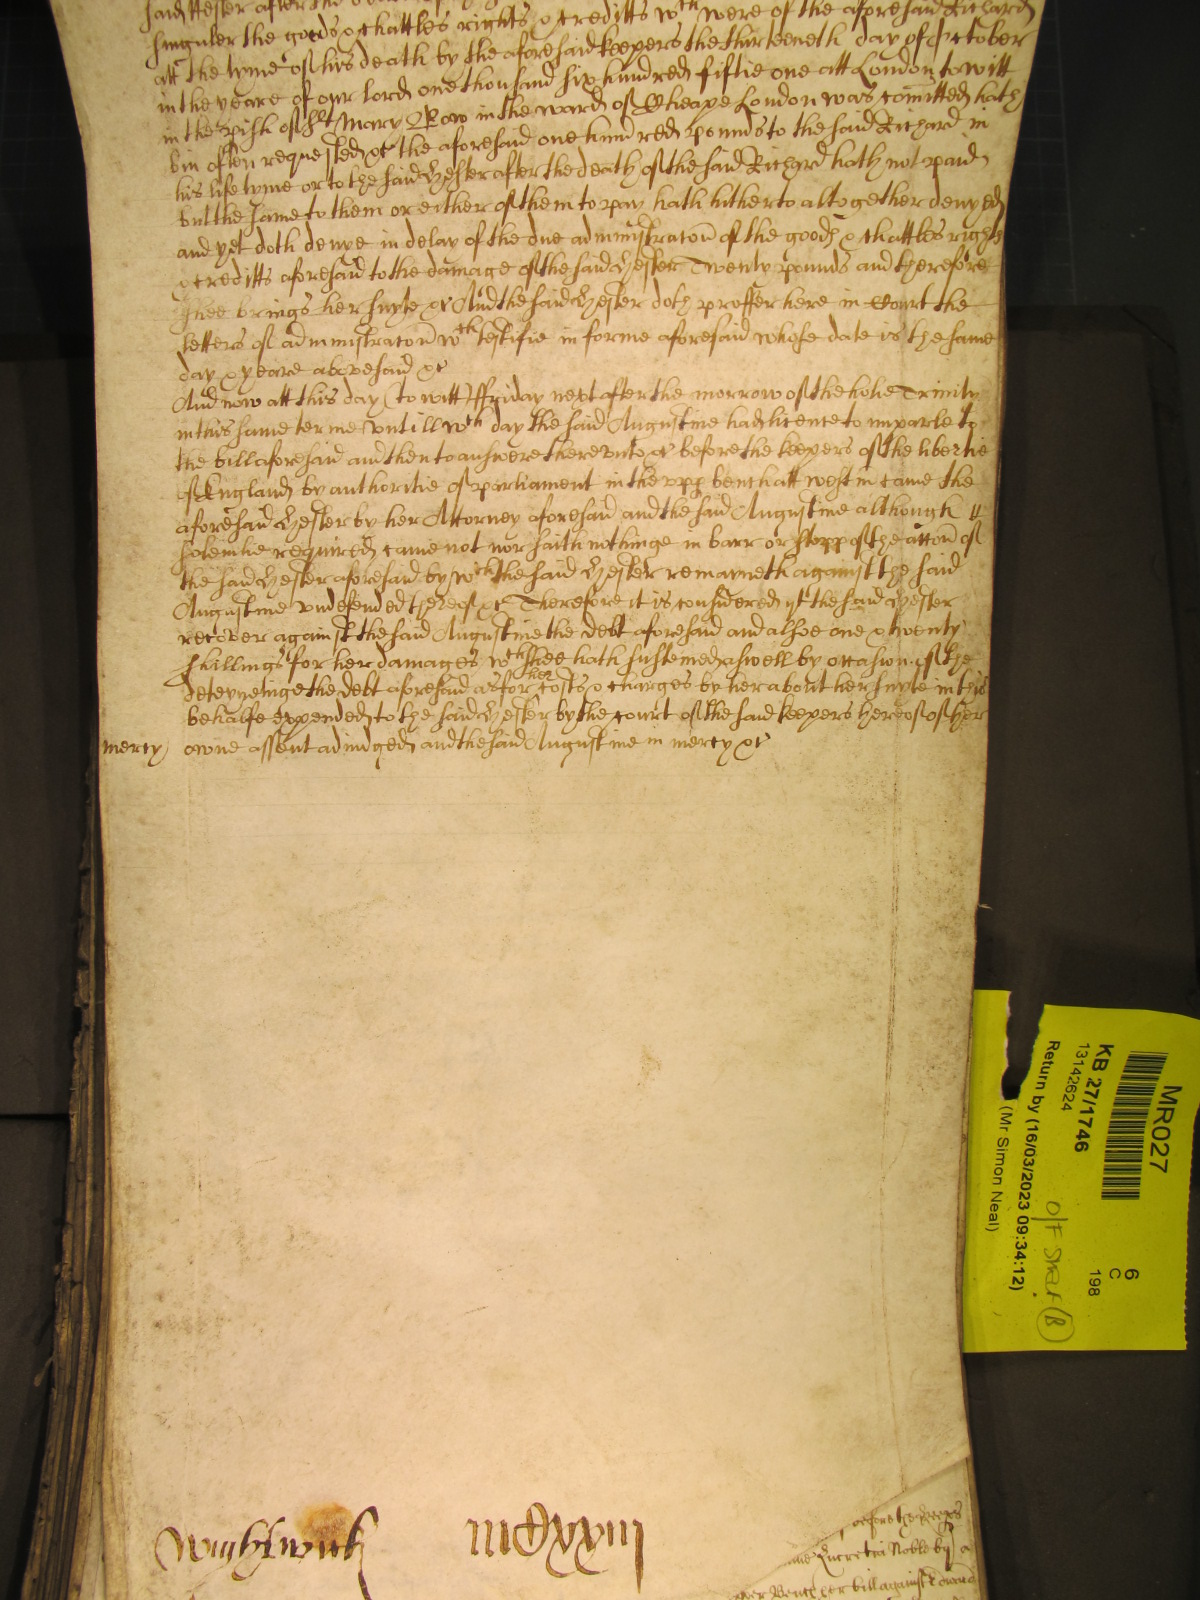 said Hester after the
singuler the goods & chattles rights & creditts wch were of the aforesaid Richard
att the tyme of his death by the aforesaid keepers the thirteeneth day of October
in the yeare of our lord one thousand six hundred fiftie one att London to witt
in the pish of St Mary Bow in the ward of Cheape London was comitted hath
bin often requested &c the aforesaid one hundred pounds to the said Richard in
his life tyme or to the said Hester after the death of the said Richard hath not paid
but the same to them or either of them to pay hath hitherto altogether denyed
and yet doth denye in delay of the due administracon of the goods & chattles rights
& creditts aforesaid to the damage of the said Hester Twenty pounds and therefore
shee brings her suyte &c And the said Hester doth proffer here in Court the
letters of administracon wch testifie in forme aforesaid whose date is the same
day & yeare abovesaid &c
And now att this day (to witt) ffryday next after the morrow of the holie Trinity
in this same terme untill wch day the said Augustine had licence to imparle to
the bill aforesaid and then to answere thereunto &c before the keepers of the libertie
of England by authoritie of parliament in the upp bench att westm came the
aforesaid Hester by her Attorney aforesaid and the said Augustine although
solemlie required came not nor saith nothinge in barr or stopp of the accon of
the said Hester aforesaid by wch the said Hester remayneth against the said
Augustine undefended thereof &c Therefore it is considered yt the said Hester
recover against the said Augustine the debt aforesaid and alsoe one & twenty
shillings for her damages wch shee hath susteined aswell by occasion of the
deteyneinge the debt aforesaid as for her costs & charges by her about her suyte in this
behalfe expended to the said Hester by the court of the said keepers hereof of her
mercy owne assent adiudged and the said Augustine in mercy &c
Wightwick
before the keepers
Lucretia Noble by
upper Bench her bill against
MR027
KB 27/1746
13142624
Return by (16/03/2023 09:34:12)
(Mr Simon Neal)
6
C
198
O/F Shelf (B)